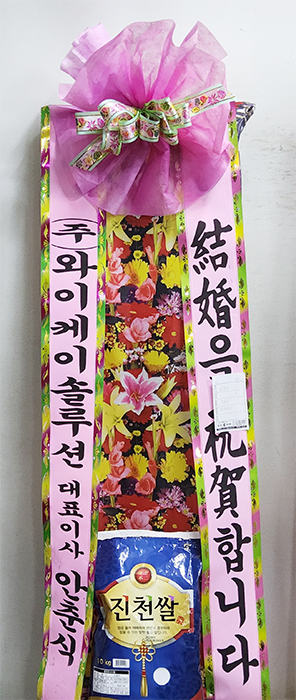 結婚을 祝賀합니다
(주)와이케이솔루션 대표이사 안춘식
진천쌀
10KG